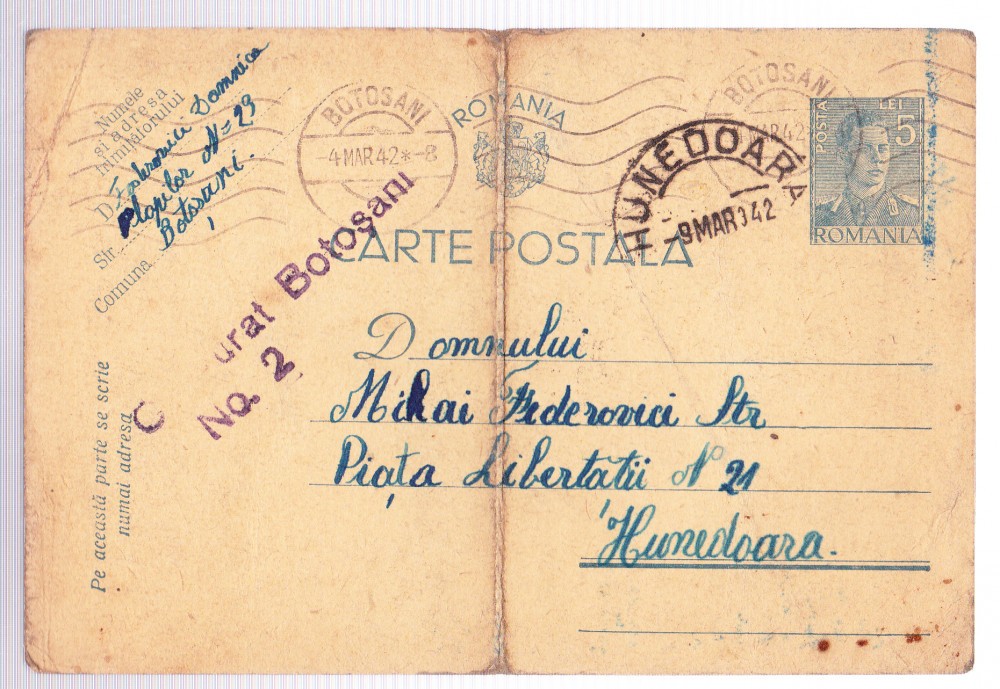 Numele
și adresa
trimițătorului
D. Federovici Domnica
Str. Plopilor N=23
Comuna Botoșani
Pe această parte se scrie
numai adresa
BOTOSANI
-4 MAR 42 *-8
ROMANIA
BOTOSANI
MAR 42
HUNEDOARA
-9 MAR 942
POSTA
LEI 5
ROMANIA
CARTE POSTALA
C urat Botoșani
No. 2
Domnului
Mihai Federovici Str
Piața Libertatii N 21
Hunedoara.